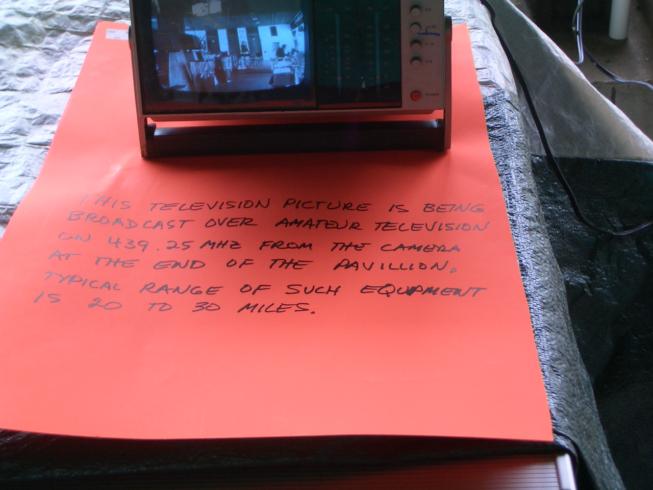 THIS TELEVISION PICTURE IS BEING
BROADCAST OVER AMATEUR TELEVISION
ON 439.25 MHZ FROM THE CAMERA
AT THE END OF THE PAVILLION.
TYPICAL RANGE OF SUCH EQUIPMENT
IS 20 TO 30 MILES.